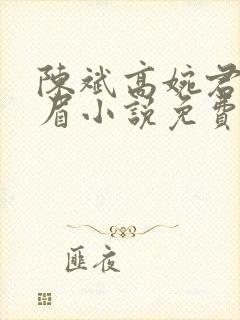 陳斌高婉君
眉小說免費
匪夜